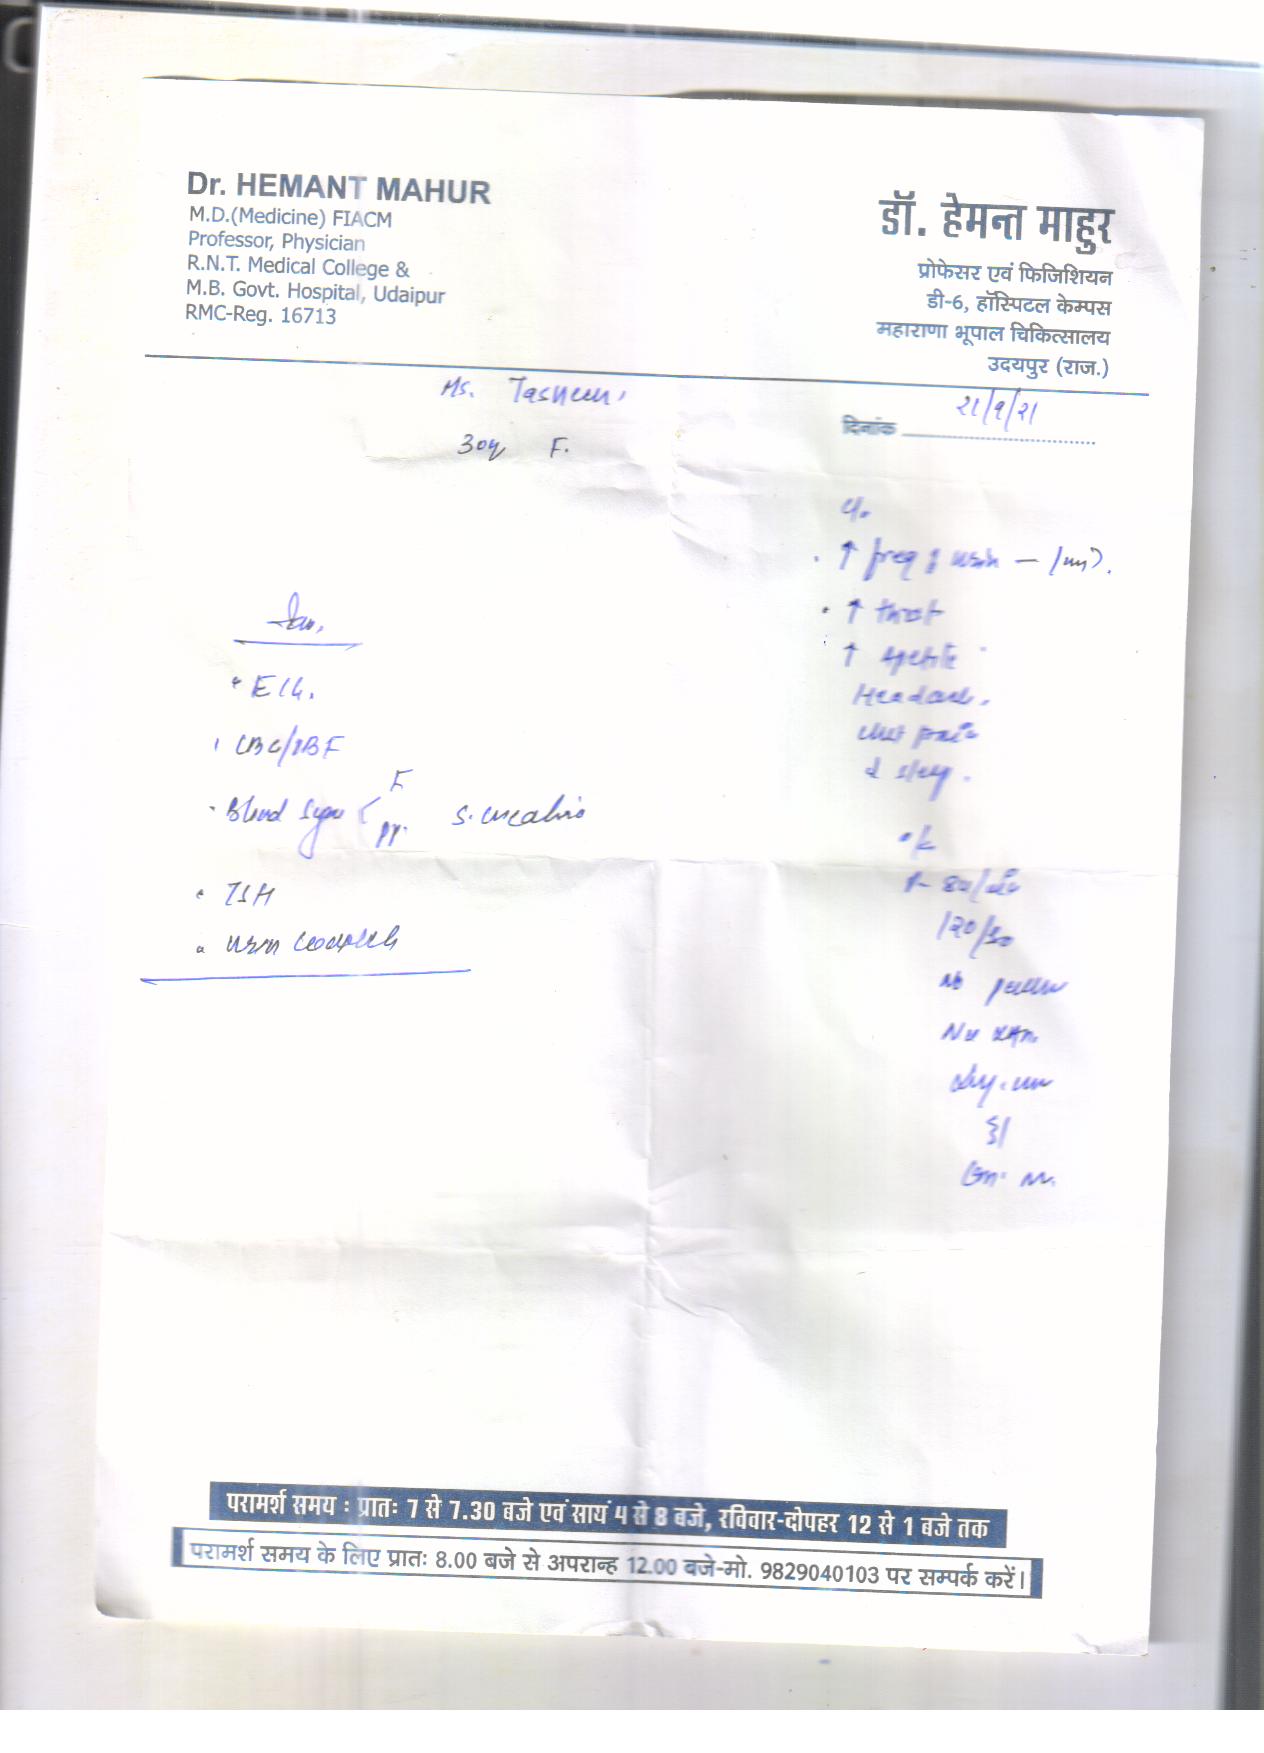 Dr. HEMANT MAHUR
M.D.(Medicine) FIACM
Professor, Physician
R.N.T. Medical College &
M.B. Govt. Hospital, Udaipur
RMC-Reg. 16713
डॉ. हेमन्त माहुर
प्रोफेसर एवं फिजिशियन
डी-6, हॉस्पिटल केम्पस
महाराणा भूपाल चिकित्सालय
उदयपुर (राज.)
Ms. Tasneem
30y F.
दिनांक 21/9/21
C/o
↑ freq of urine
↑ thirst
↑ Apetite
Headache.
chest pain
↓ sleep.
O/E
P- 84/
120/80
No
Inv.
• ECG.
CBC/PBF
• Blood Sugar F
PP. S. creatinine
• TSH
• urine complete
परामर्श समय : प्रातः 7 से 7.30 बजे एवं सायं 4 से 8 बजे, रविवार-दोपहर 12 से 1 बजे तक
परामर्श समय के लिए प्रातः 8.00 बजे से अपरान्ह 12.00 बजे-मो. 9829040103 पर सम्पर्क करें।